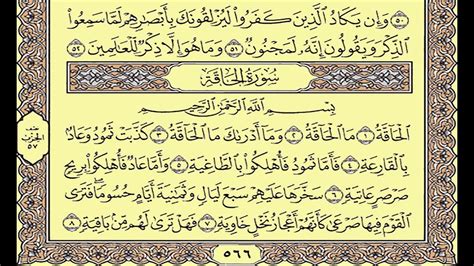 وَإِن يَكَادُ الَّذِينَ كَفَرُوا لَيُزْلِقُونَكَ بِأَبْصَارِهِمْ لَمَّا سَمِعُوا
الذِّكْرَ وَيَقُولُونَ إِنَّهُ لَمَجْنُونٌ ٥١ وَمَا هُوَ إِلَّا ذِكْرٌ لِّلْعَالَمِينَ ٥٢
سُورَةُ الحَاقَّةِ
بِسْمِ اللَّهِ الرَّحْمَٰنِ الرَّحِيمِ
الْحَاقَّةُ ١ مَا الْحَاقَّةُ ٢ وَمَا أَدْرَاكَ مَا الْحَاقَّةُ ٣ كَذَّبَتْ ثَمُودُ وَعَادٌ
بِالْقَارِعَةِ ٤ فَأَمَّا ثَمُودُ فَأُهْلِكُوا بِالطَّاغِيَةِ ٥ وَأَمَّا عَادٌ فَأُهْلِكُوا بِرِيحٍ
صَرْصَرٍ عَاتِيَةٍ ٦ سَخَّرَهَا عَلَيْهِمْ سَبْعَ لَيَالٍ وَثَمَانِيَةَ أَيَّامٍ حُسُومًا فَتَرَى
الْقَوْمَ فِيهَا صَرْعَىٰ كَأَنَّهُمْ أَعْجَازُ نَخْلٍ خَاوِيَةٍ ٧ فَهَلْ تَرَىٰ لَهُم مِّن بَاقِيَةٍ ٨
٥٦٦
الحزب
٥٧